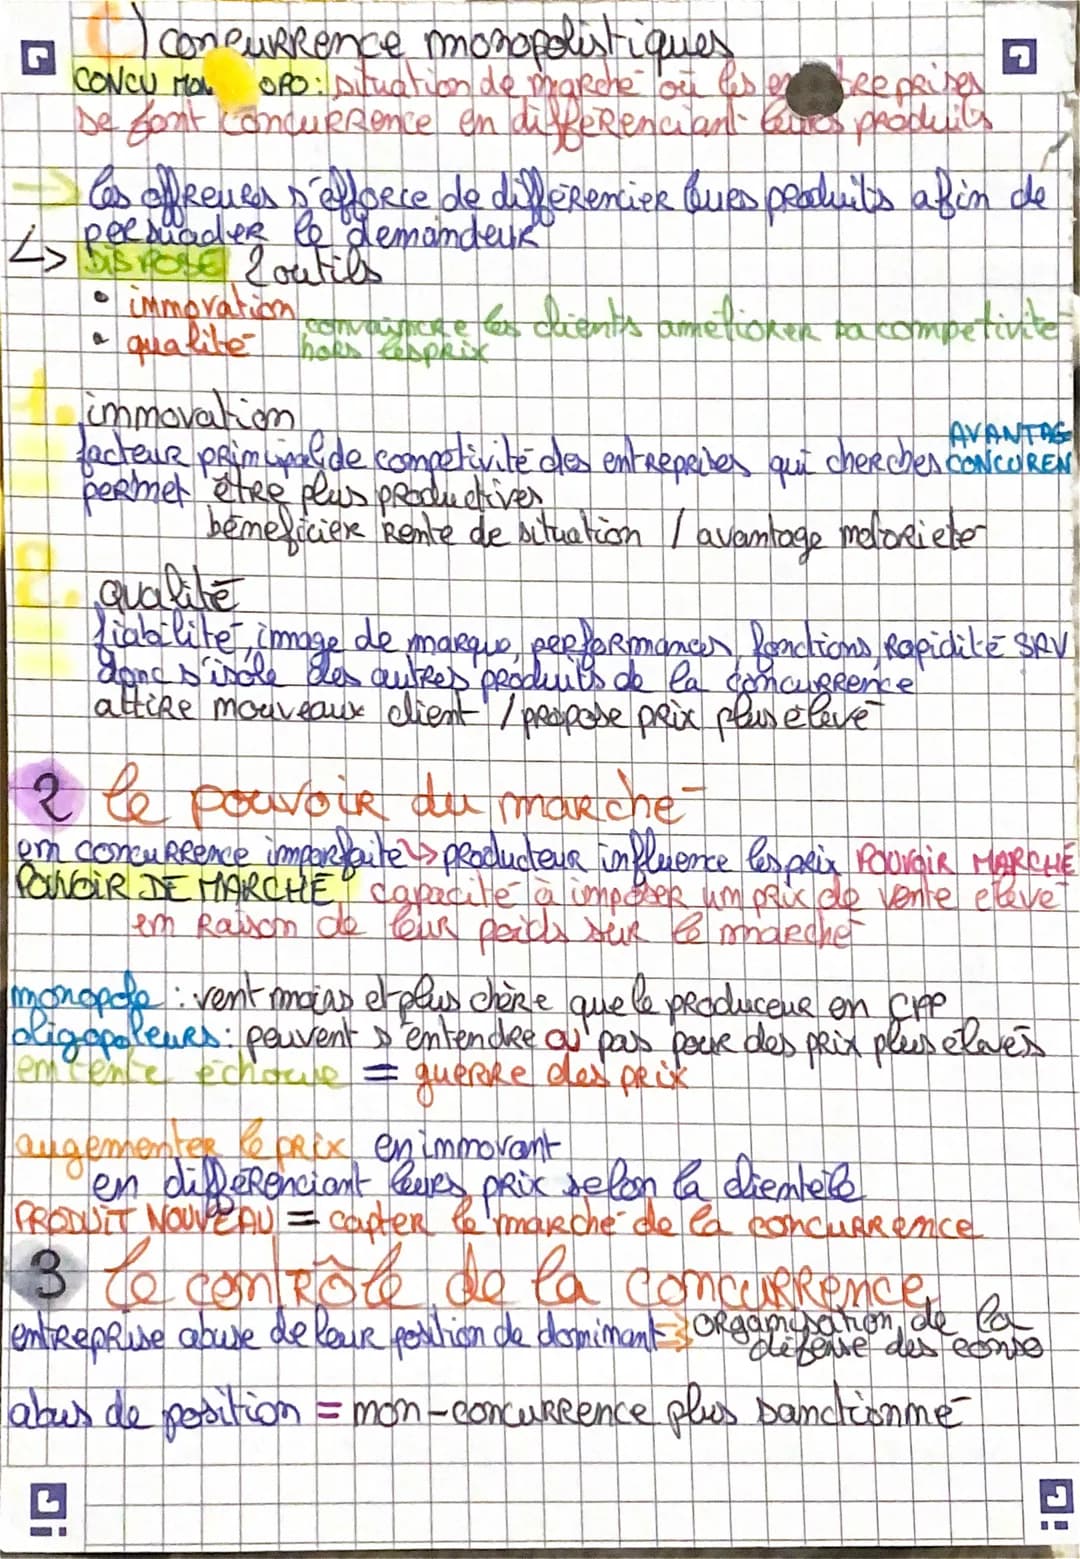 C) concurrence monopolistiques
CONCU MON OPO : situation de marché où les entreprises
se font concurrence en différenciant leurs produits
→ les offreurs s'efforce de différencier leurs produits afin de
persuader le demandeur
↳ DISPOSE 2 outils
• innovation
• qualité
convaincre les clients améliorer sa competivité
hors les prix
1. innovation
AVANTAG
facteur principal de competivité des entreprises qui cherches CONCUREN
permet être plus productives
béneficier Rente de situation / avantage notoriete
2. qualité
fiabilité, image de marque, performances, fonctions, Rapidité SAV
donc s'isole des autres produits de la concurrence
attire nouveaux client / propose prix plus élevé
2 le pouvoir du marché
en concurrence imparfaite ↳ producteur influence les prix POUVOIR MARCHÉ
POUVOIR DE MARCHÉ : capacité à imposer un prix de vente élevé
en Raison de leur poids sur le marché
monopole : vent moins et plus chère que le produceur en CPP
oligopoleurs : peuvent s'entendre ou pas pour des prix plus élevés
entente échoue = guerre des prix
augementer le prix en innovant
en différenciant leurs prix selon la clientèle
PRODUIT NOUVEAU = capter le marché de la concurrence
3 le contrôle de la concurrence
entreprise abuse de leur position de dominant → organisation de la
défense des conso
abus de position = non-concurrence plus sanctionné